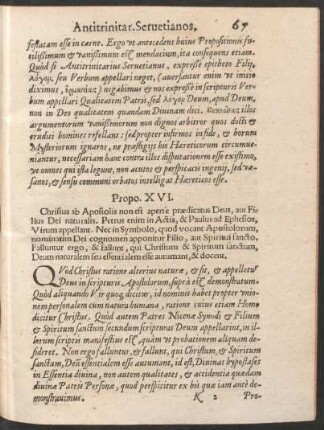 Antitrinitar. Seruetianos. 67
festatam esse in carne. Ergo vt antecedens huius Propositionis fu-
tilissimum & vanissimum est mendacium, ita consequens etiam.
Quòd si Antitrinitarius Seruetianus, expressè epitheto Filij,
λόγου, seu Verbum appellari neget, (auersantur enim vt initio
diximus, nugabimus & nos expressè in scripturis Ver-
bum appellari Qualitatem Patris, sed λόγον Deum, apud Deum,
non in Deo qualitatem quandam Diuinam dici. illius
argumentorum vanissimorum non dignos arbitror quos docti &
eruditi homines refellant: sed propter infirmos in fide, & horum
Mysteriorum ignaros, ne præstigijs his Hæreticorum circumue-
niantur, necessariam hanc contra illos disputationem esse existimo,
vt omnes qui ista legent, non acutos & perspicacis ingenij, sed ve-
sanos, & sensu communi orbatos intelligat Hæreticos esse.
Propo. XVI.
Christus ab Apostolis non est apertè prædicatus Deus, aut Fi-
lius Dei naturalis. Petrus enim in Actis, & Paulus ad Ephesios,
Virum appellant. Nec in Symbolo, quod vocant Apostolorum,
nominatim Dei cognomen apponitur Filio, aut Spiritui sancto.
Falluntur ergo, & fallunt, qui Christum & Spiritum sanctum,
Deum naturalem seu essentialem esse autumant, & docent.
QVod Christus ratione alterius naturæ, & sit, & appelletur
Deus in scripturis Apostolorum, suprà est demonstratum.
Quòd aliquando Vir quoq; dicitur, id nominis habet propter vnio-
nem personalem cum natura humana, ratione cuius etiam Homo
dicitur Christus. Quòd autem Patres Nicenæ Synodi & Filium
& Spiritum sanctum secundum scripturas Deum appellarint, in il-
lorum scriptis manifestius est, quàm vt probationem aliquam de-
sideret. Non ergo falluntur, & fallunt, qui Christum, & Spiritum
sanctum, Deũ essentialem esse autumant, id est, Diuinas hypostases
in Essentia diuina, non autem qualitates, & accidentia quædam
diuinæ Patris Personæ, quod perspicitur ex his quæ iam antè de-
monstrauimus. K 2 Pro-